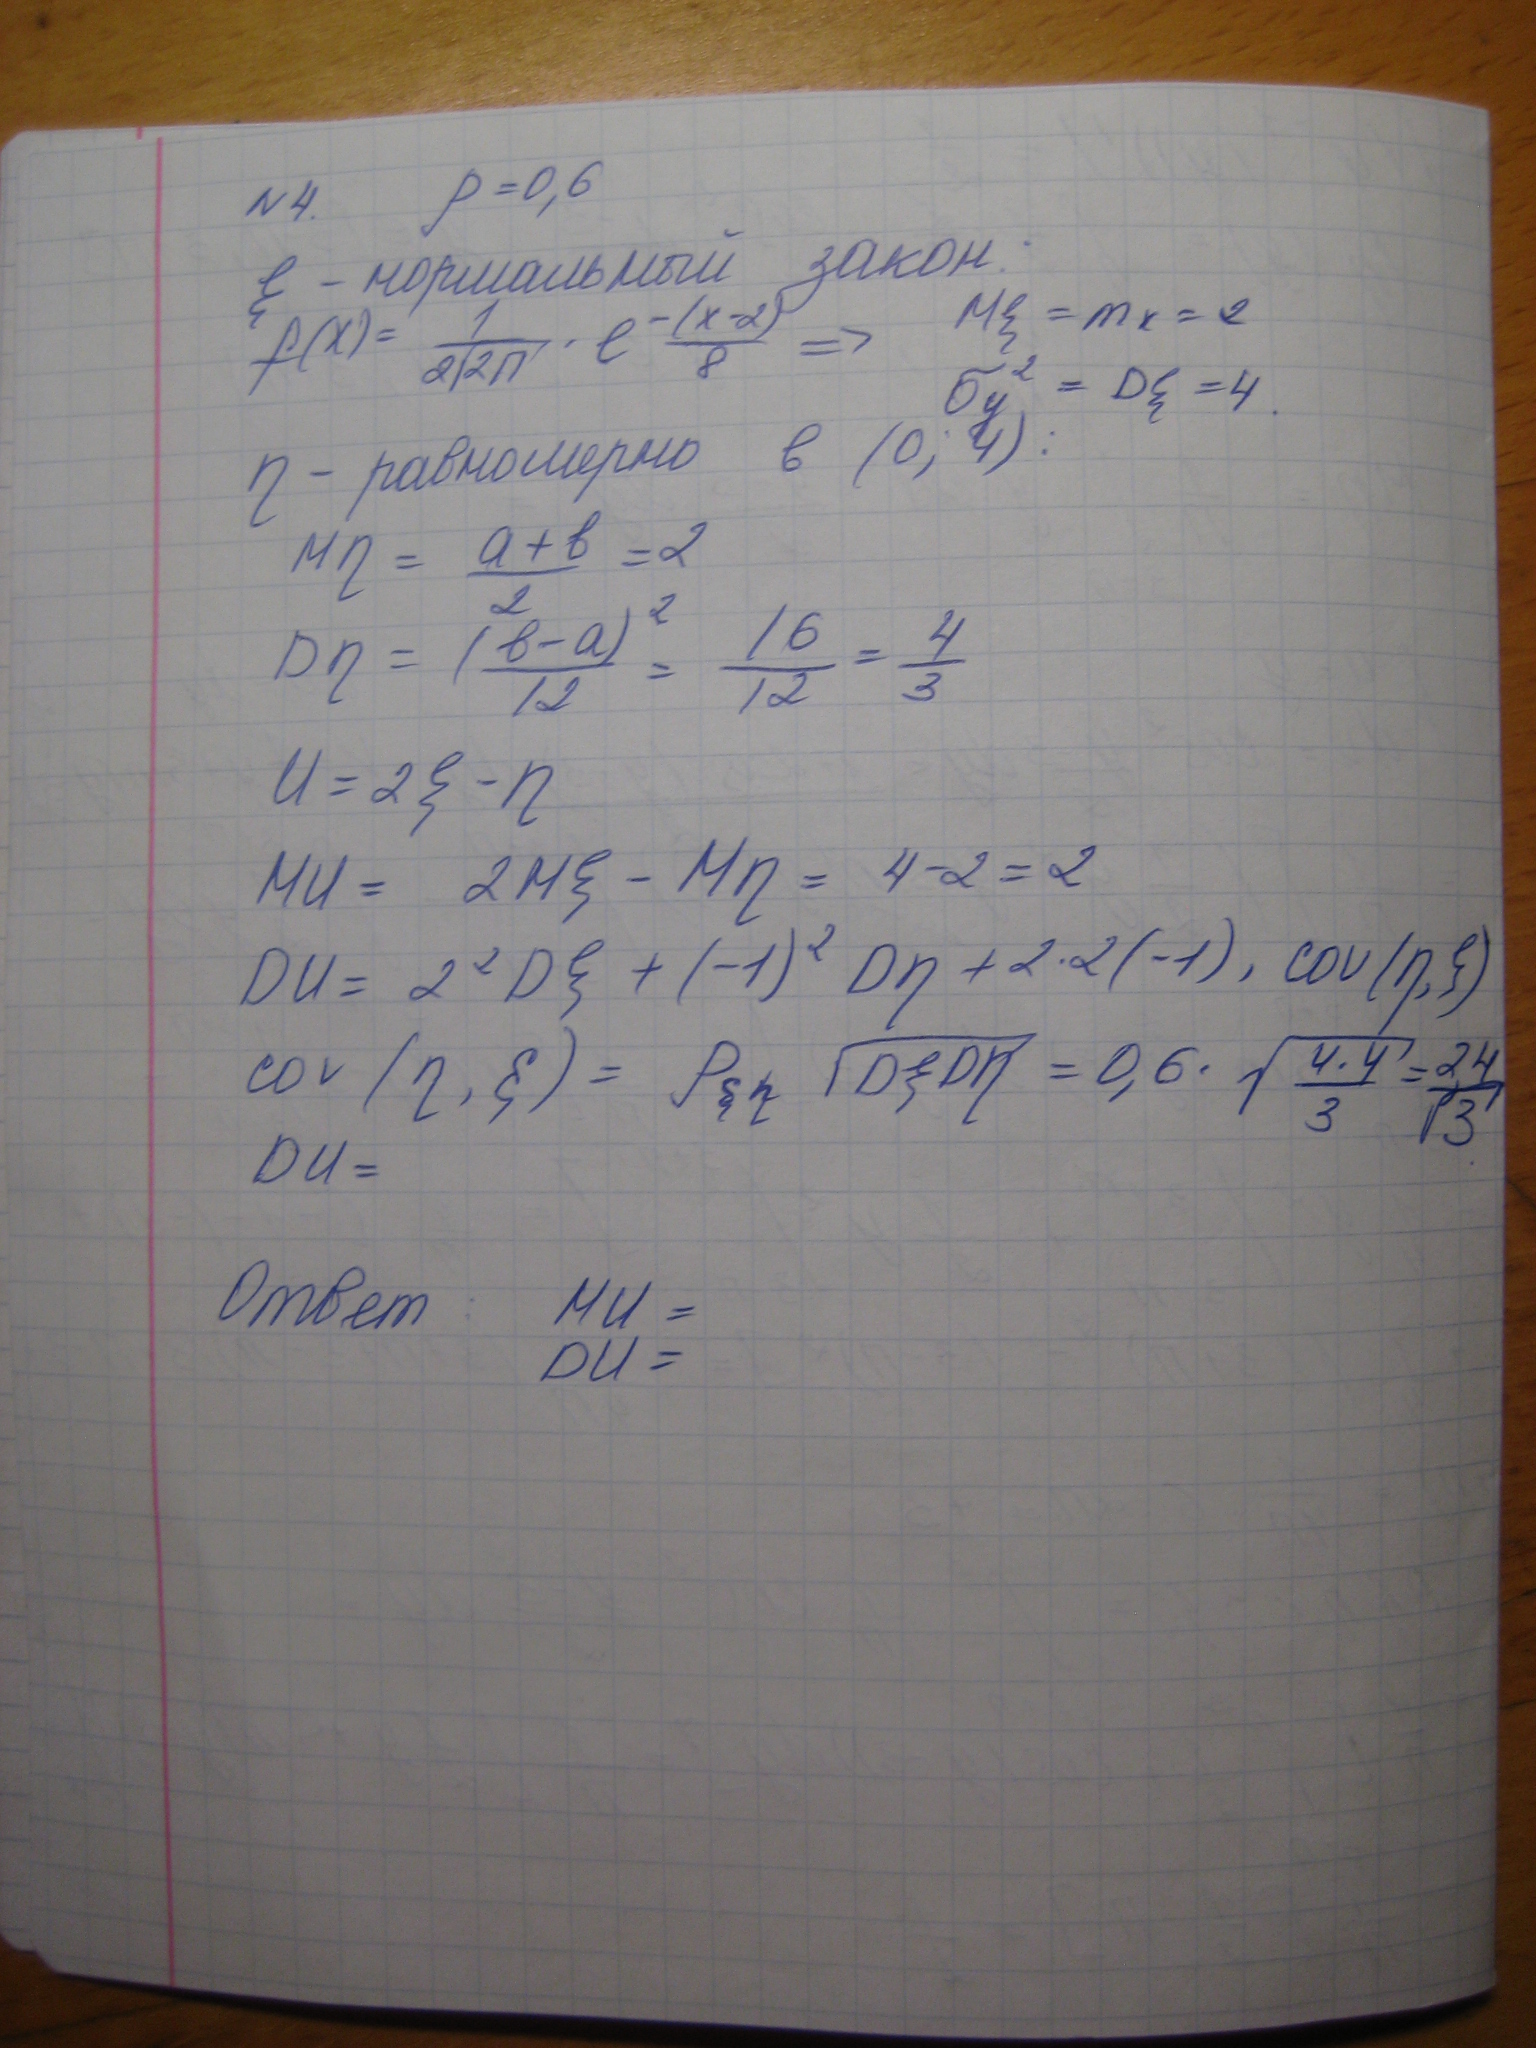 N4. ρ = 0,6
ξ - нормальный закон:
f(x) = 1/(2√2π) · e^(-(x-2)/8) => Mξ = mx = 2
σy² = Dξ = 4.
η - равномерно в (0; 4):
Mη = (a+b)/2 = 2
Dη = (b-a)²/12 = 16/12 = 4/3
U = 2ξ - η
MU = 2Mξ - Mη = 4-2 = 2
DU = 2² Dξ + (-1)² Dη + 2·2(-1), cov(η,ξ)
cov (η, ξ) = ρξη √DξDη = 0,6 · √(4·4/3) = 2,4/√3
DU =
Ответ: MU =
DU =